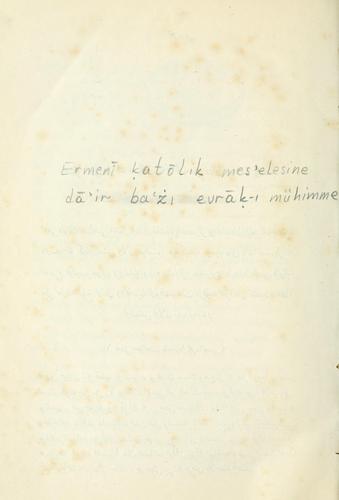 Ermenī ḳatōlik mes'elesine
dā'ir ba'żı evrāḳ-ı mühimme